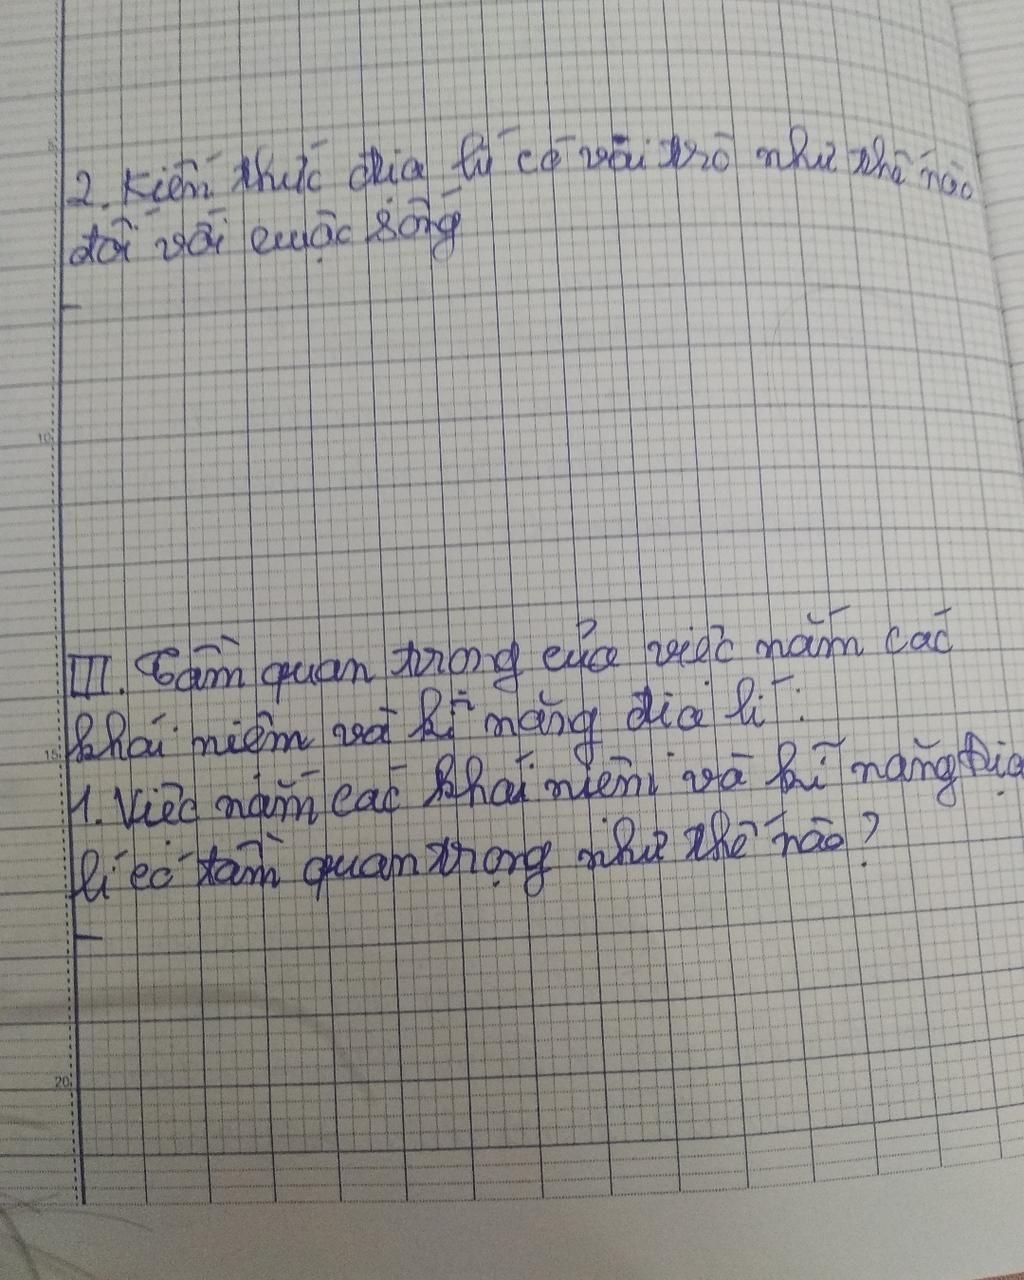 2. Kiến thức địa lí có vai trò như thế nào
đối với cuộc sống
III. Tầm quan trọng của việc nắm các
khái niệm và kĩ năng địa lí:
1. Việc nắm các khái niệm và kĩ năng Địa
lí có tầm quan trọng như thế nào?
10
15
20